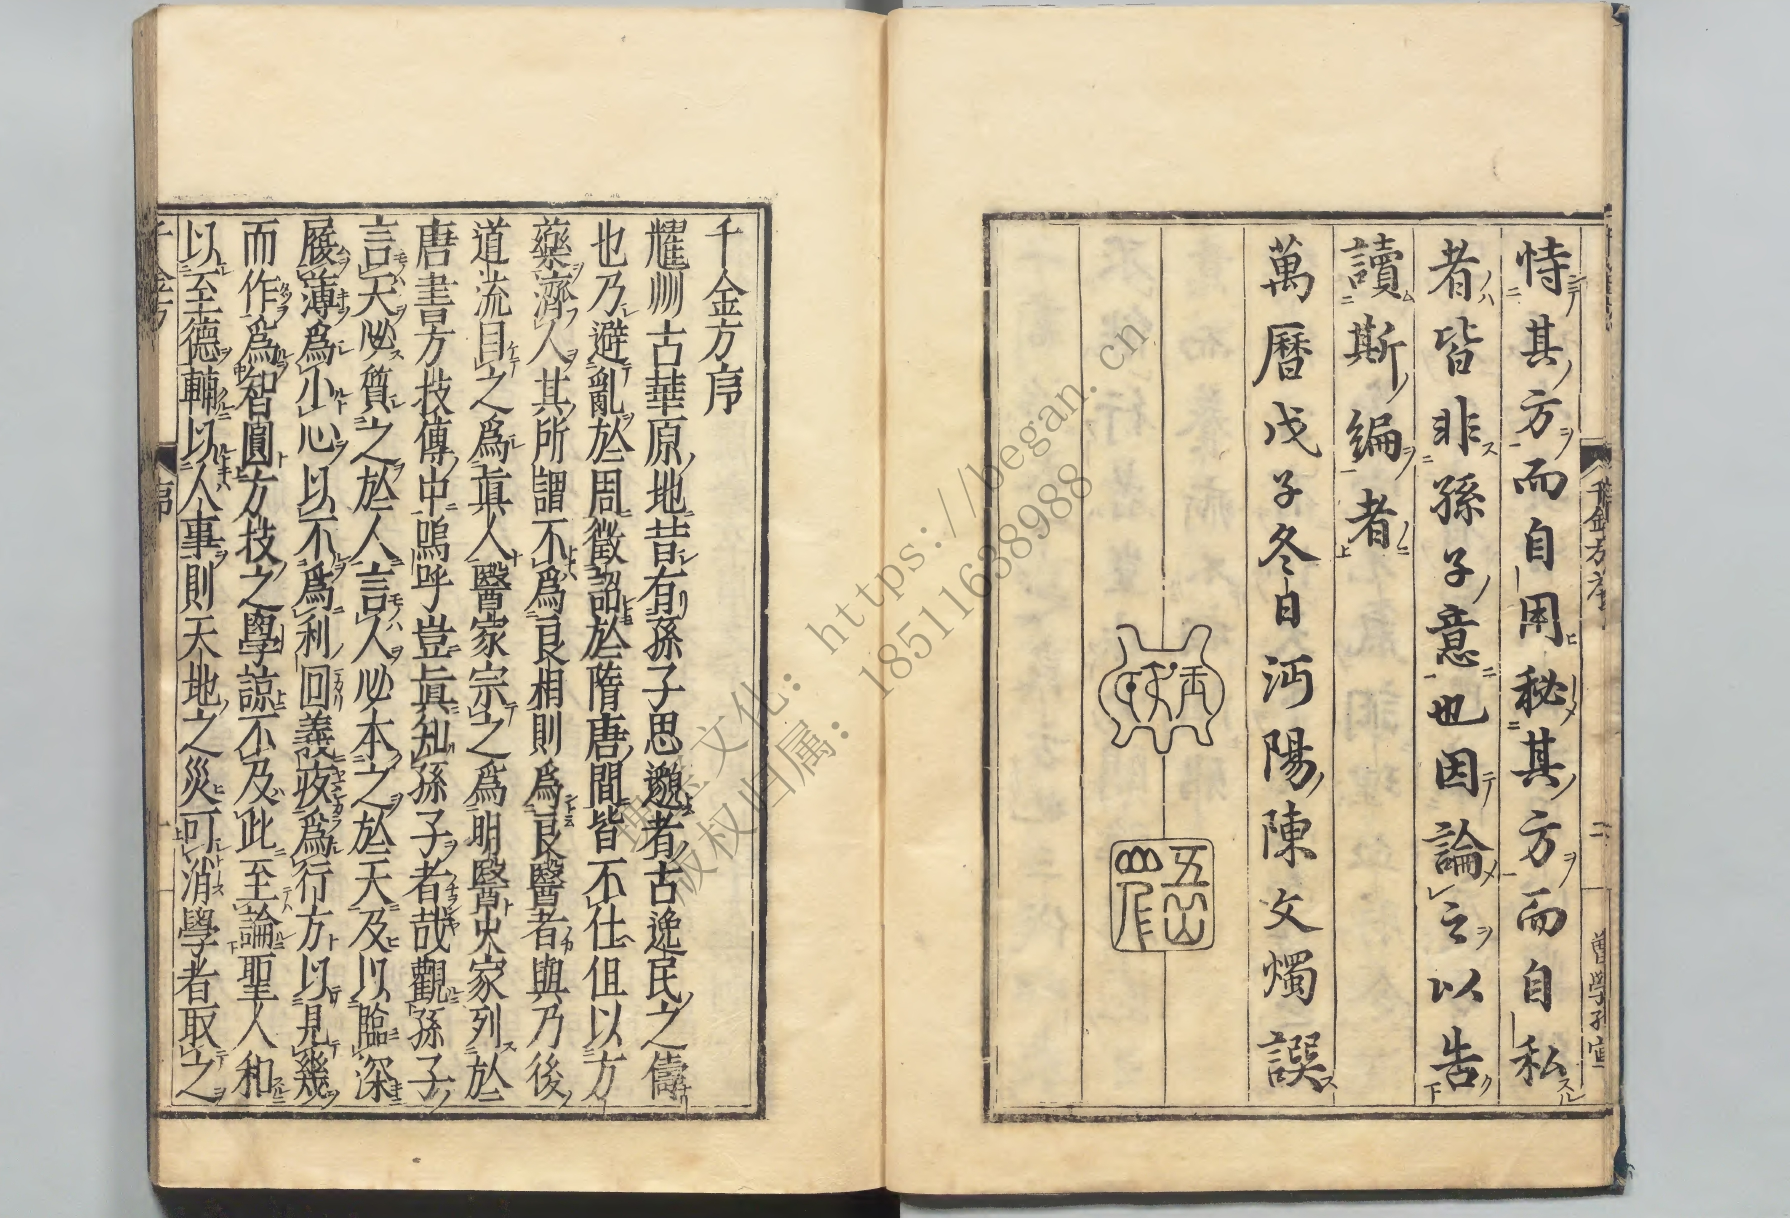 恃其方而自用秘其方而自私
者皆非孫子意也因論之以告
讀斯編者
萬曆戊子冬日沔陽陳文燭譔
五山
千金方序
二
千金方序
耀州古華原地昔有孫子思邈者古逸民之儔
也乃避亂於周徵詔於隋唐間皆不仕伹以方
藥濟人其所謂不為良相則為良醫者與乃後
道流目之為眞人醫家宗之為明醫史家列於
唐書方技傳中嗚呼豈眞知孫子者哉觀孫子
言天必質之於人言人必本之於天及以臨深
履薄為小心以不為利回義疚為行方以見幾
而作為智圓方技之學諒不及此至論聖人和
以至德輔以人事則天地之災可消學者取之
序
一
理念文化：https://began.cn
版权归属：18511638988